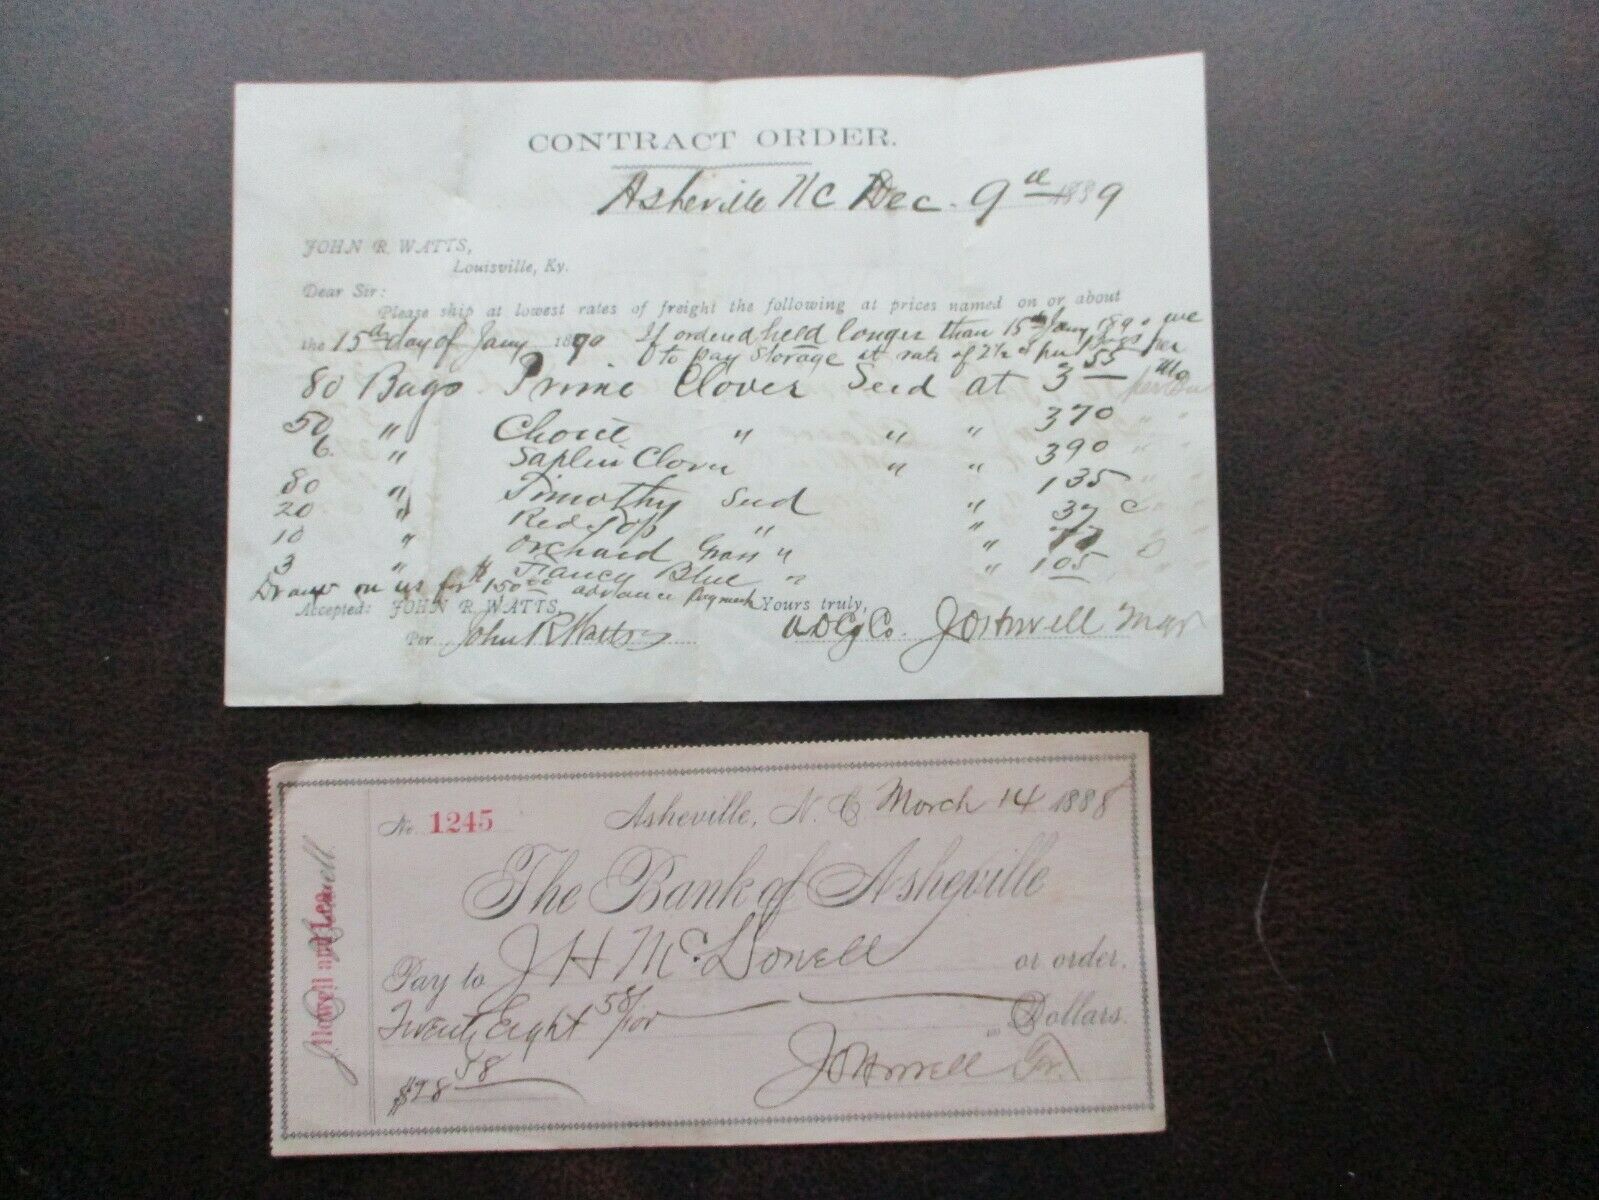 CONTRACT ORDER.
Asheville NC Dec. 9th 1889
JOHN R. WATTS,
Louisville, Ky.
Dear Sir:
Please ship at lowest rates of freight the following at prices named on or about
the 15th day of Jany 1890 If ordered held longer than 15th Jany 1890 we
to pay storage at rate of 2½ ¢ per Bags per
Mo
80 Bags Prime Clover Seed at 3 55 per Bu
50 " Choice " " " 370 " "
6 " Saplin Clover " " 390 " "
80 " Timothy Seed " 135 " "
20 " Red Top " " 37 c " "
10 " Orchard Grass " "
3 " Fancy Blue " " 105
Draw on us for $150.00 advance Payment
Accepted: JOHN R. WATTS, Yours truly,
Per John R Watts Co. J O Howell Mgr
No. 1245 Asheville, N. C. March 14 1888
The Bank of Asheville
Pay to J H McDowell or order.
Twenty Eight 58/100 Dollars.
$28 58 J O Howell
J. O. Howell
Howell and Lea